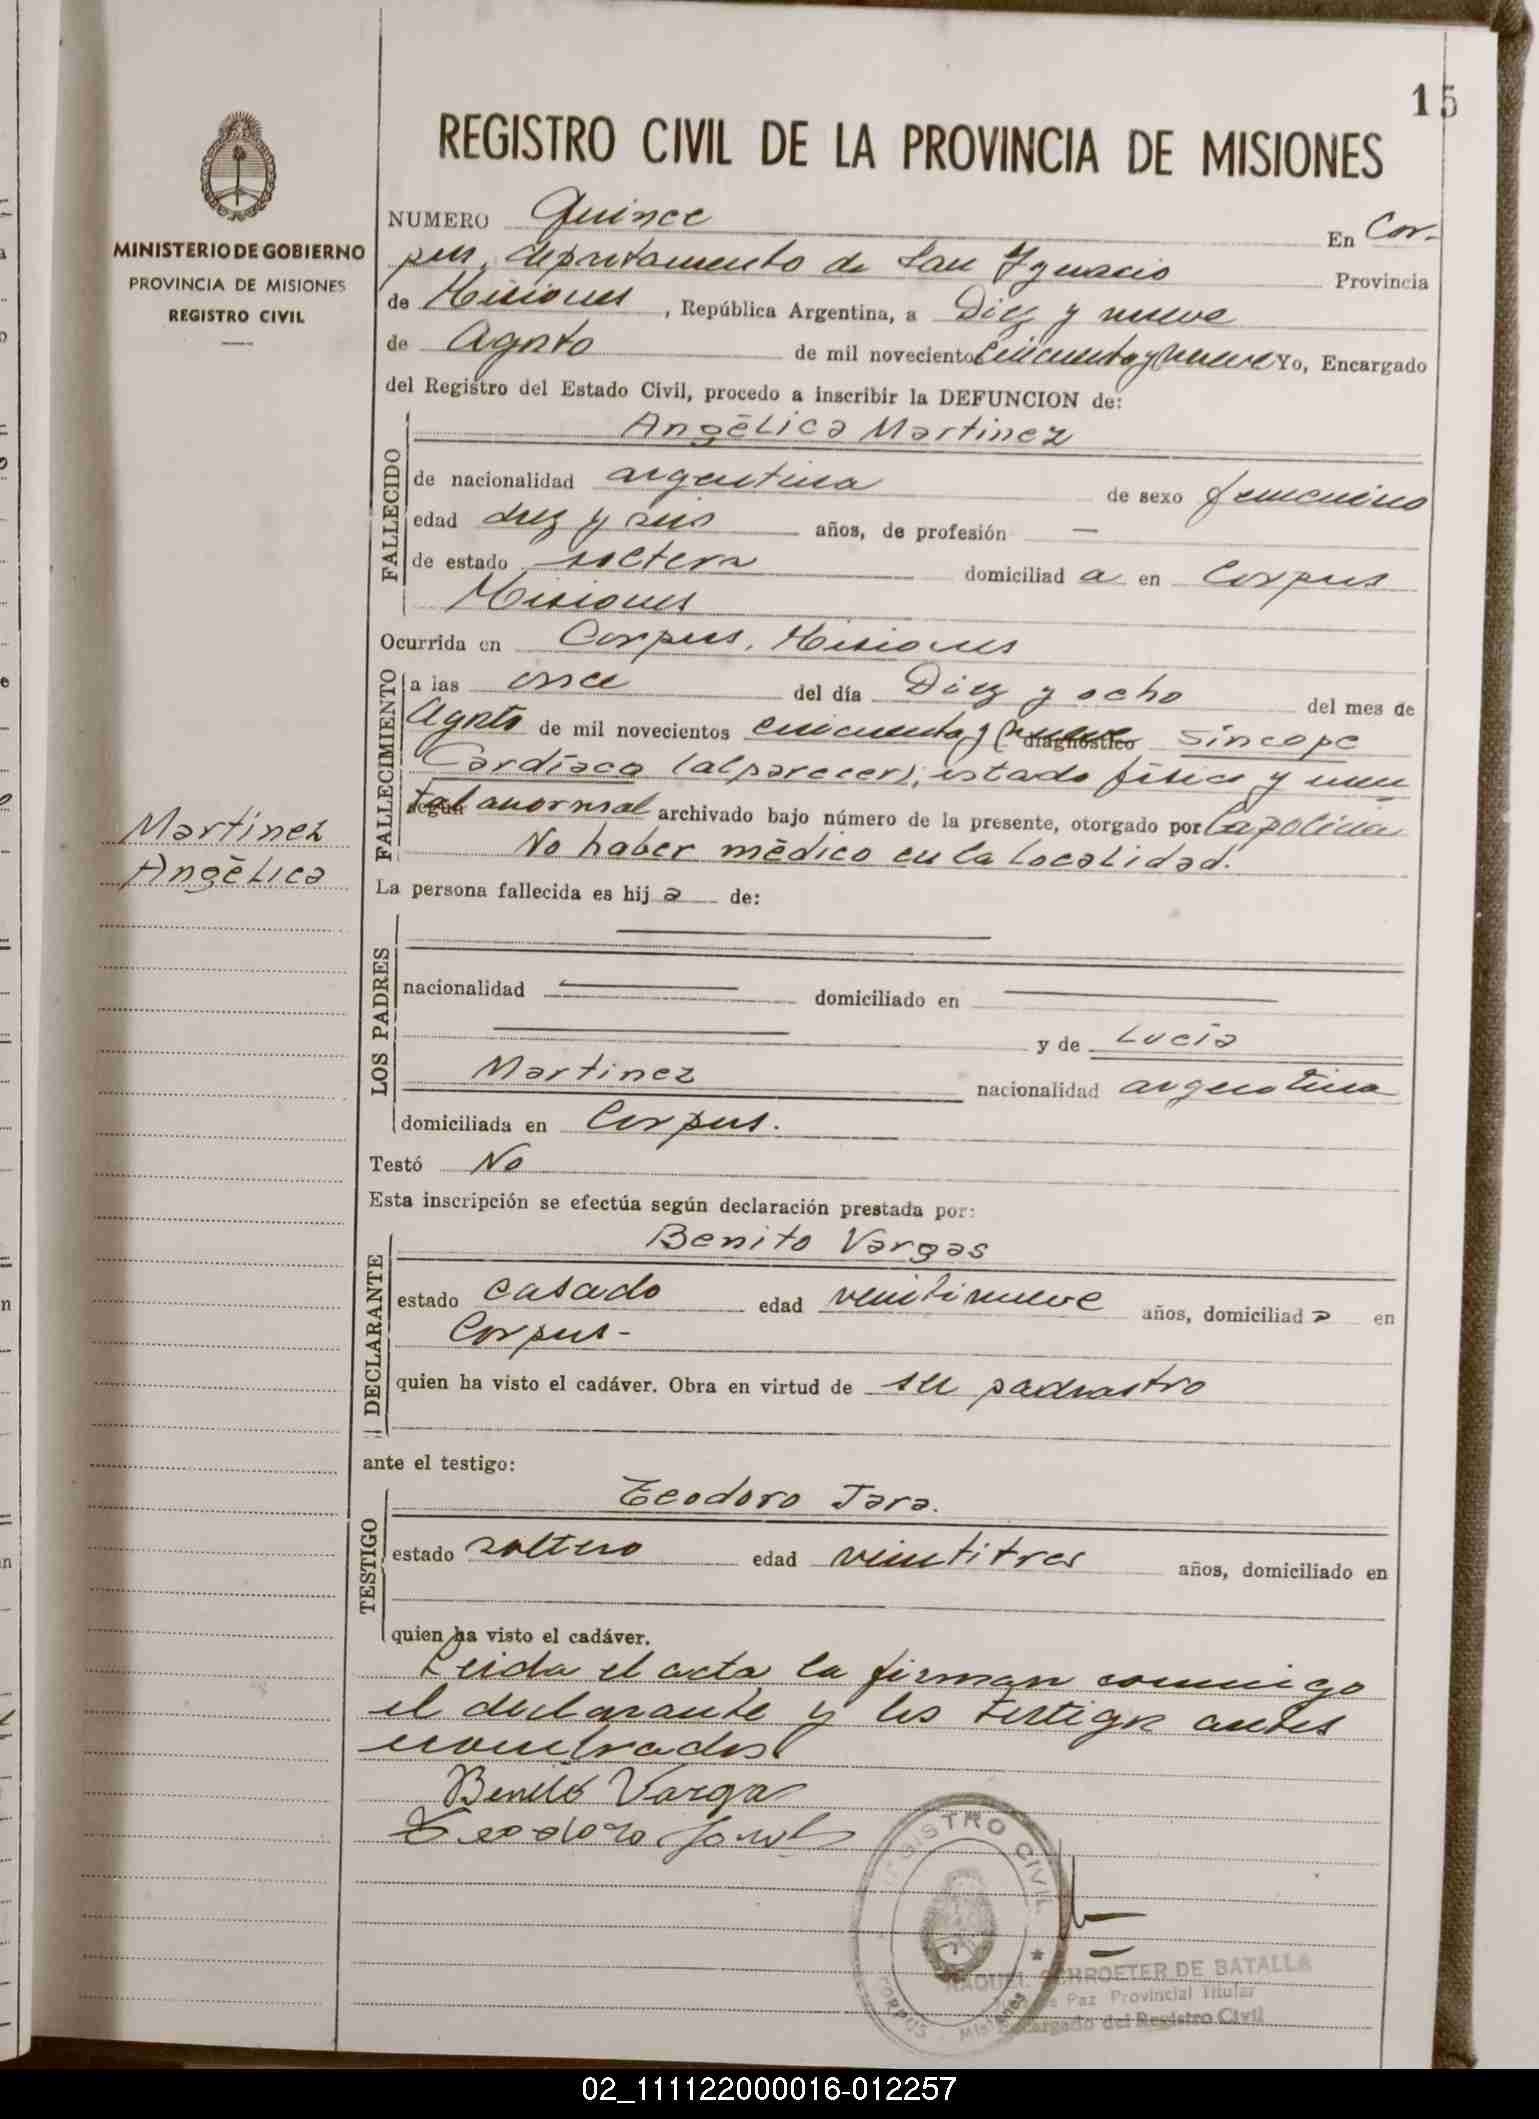 15
REGISTRO CIVIL DE LA PROVINCIA DE MISIONES
MINISTERIO DE GOBIERNO
PROVINCIA DE MISIONES
REGISTRO CIVIL
NUMERO Quince En Cor-
pus, departamento de San Ignacio Provincia
de Misiones, República Argentina, a Diez y nueve
de Agosto de mil noveciento cincuenta y nueve Yo, Encargado
del Registro del Estado Civil, procedo a inscribir la DEFUNCION de:
FALLECIDO
Angélica Martinez
de nacionalidad argentina de sexo femenino
edad diez y seis años, de profesión —
de estado soltera domiciliad a en Corpus
Misiones
Ocurrida en Corpus, Misiones
FALLECIMIENTO
a las once del día Diez y ocho del mes de
Agosto de mil novecientos cincuenta y nueve diagnóstico Síncope
Cardíaco (al parecer); estado físico y men
según tal anormal archivado bajo número de la presente, otorgado por la policia
No haber médico en la localidad.
Martinez
Angélica
La persona fallecida es hij a de:
LOS PADRES
nacionalidad domiciliado en
y de Lucía
Martinez nacionalidad argentina
domiciliada en Corpus.
Testó No
Esta inscripción se efectúa según declaración prestada por:
DECLARANTE
Benito Vargas
estado casado edad veintinueve años, domiciliad o en
Corpus-
quien ha visto el cadáver. Obra en virtud de su padrastro
ante el testigo:
TESTIGO
Teodoro Jara.
estado soltero edad veintitres años, domiciliado en
quien ha visto el cadáver.
Leida el acta la firman conmigo
el declarante y los testigos antes
nombrados
Benito Vargas
Teodoro Jara
REGISTRO CIVIL
CORPUS Misiones
RAQUEL SCHROETER DE BATALLA
Paz Provincial Titular
Encargado del Registro Civil
02_111122000016-012257